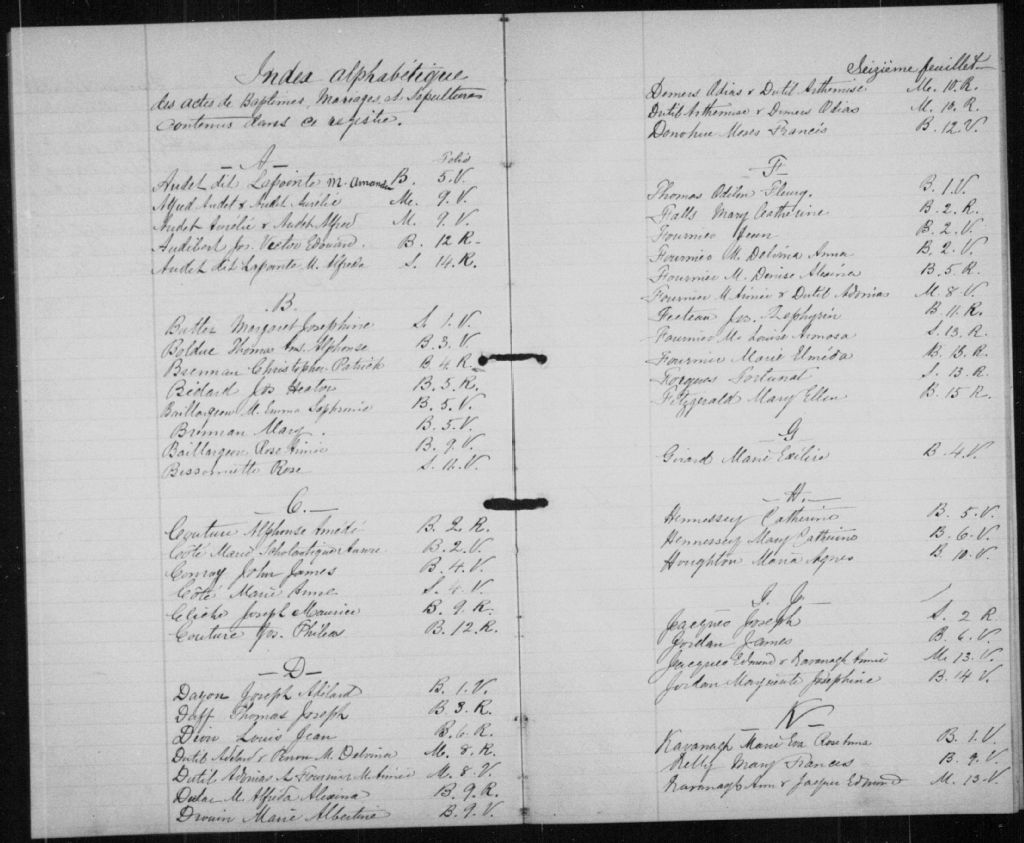 Index alphabétique
des actes de Baptêmes, Mariages et Sépultures
contenus dans ce registre.
A
Folio
Audet dit Lapointe M. Amanda B. 5.V.
Alfred Audet & Audet Aurélie M. 9.V.
Audet Aurélie & Audet Alfred M. 9.V.
Audibert Jos. Victor Edouard. B. 12 R.
Audet dit Lapointe M. Alfreda S. 14.R.
B.
Butler Margaret Josephine S. 1.V.
Bolduc Thomas Alphonse B. 3.V.
Brennan Christopher Patrick B. 4.R.
Bédard Jos Hector B. 5.R.
Baillargeon M. Emma Sophronie B. 5.V.
Brennan Mary. B. 5.V.
Baillargeon Rose Aimée B. 9.V.
Bissonnette Rose S. 11.V.
C.
Couture Alphonse Amédé B. 2.R.
Coté Marie Scholastique B. 2.V.
Conroy John James B. 4.V.
Côté Marie Anne S. 4.V.
Cliche Joseph Maurice B. 9.R.
Couture Jos. Philéas B. 12.R.
D
Dayon Joseph Adélard B. 1.V.
Daff Thomas Joseph B. 3.R.
Dion Louis Jean B. 6.R.
Dutil Adélard & M. Delvina M. 8.R.
Dutil Adonias & Fournier M. Aimée M. 8.V.
M. Alfrida Alexina B. 9.R.
Drouin Marie Albertine B. 9.V.
Seizième feuillet
Demers Odias & Dutil Arthemise M. 10.R.
Dutil Arthemise & Demers Odias M. 10.R.
Donohue Moses Francis B. 12.V.
F
Thomas Odilon Fleury. B. 1.V.
Falls Mary Catherine B. 2.R.
Fournier Jean B. 2.V.
Fournier M. Delvina Anna B. 2.V.
Fournier M. Denise Alexina B. 5.R.
Fournier M Aimée & Dutil Adonias M. 8.V.
Fecteau Jos. Zephyrin B. 11.R.
Fournier M. Louise S. 13.R.
Fournier Marie Elméda B. 13.R.
Forgues Fortunat S. 13.R.
Fitzgerald Mary Ellen B. 15 R.
G
Girard Marie Exilire B. 4.V.
H.
Hennessey Catherine B. 5.V.
Hennessey Mary Catherine B. 6.V.
Houghton Maria Agnes B. 10.V.
J.
Jacques Joseph S. 2 R
Jordan James B. 6.V.
Jacques Edmund & Kavanagh Annie M. 13.V.
Jordan Marguerite Josephine B. 14 V.
K
Kavanagh Marie Eva Rose Anna B. 1.V.
Kelly Mary Frances B. 9.V.
Kavanagh Ann & Jacques Edmund M. 13.V